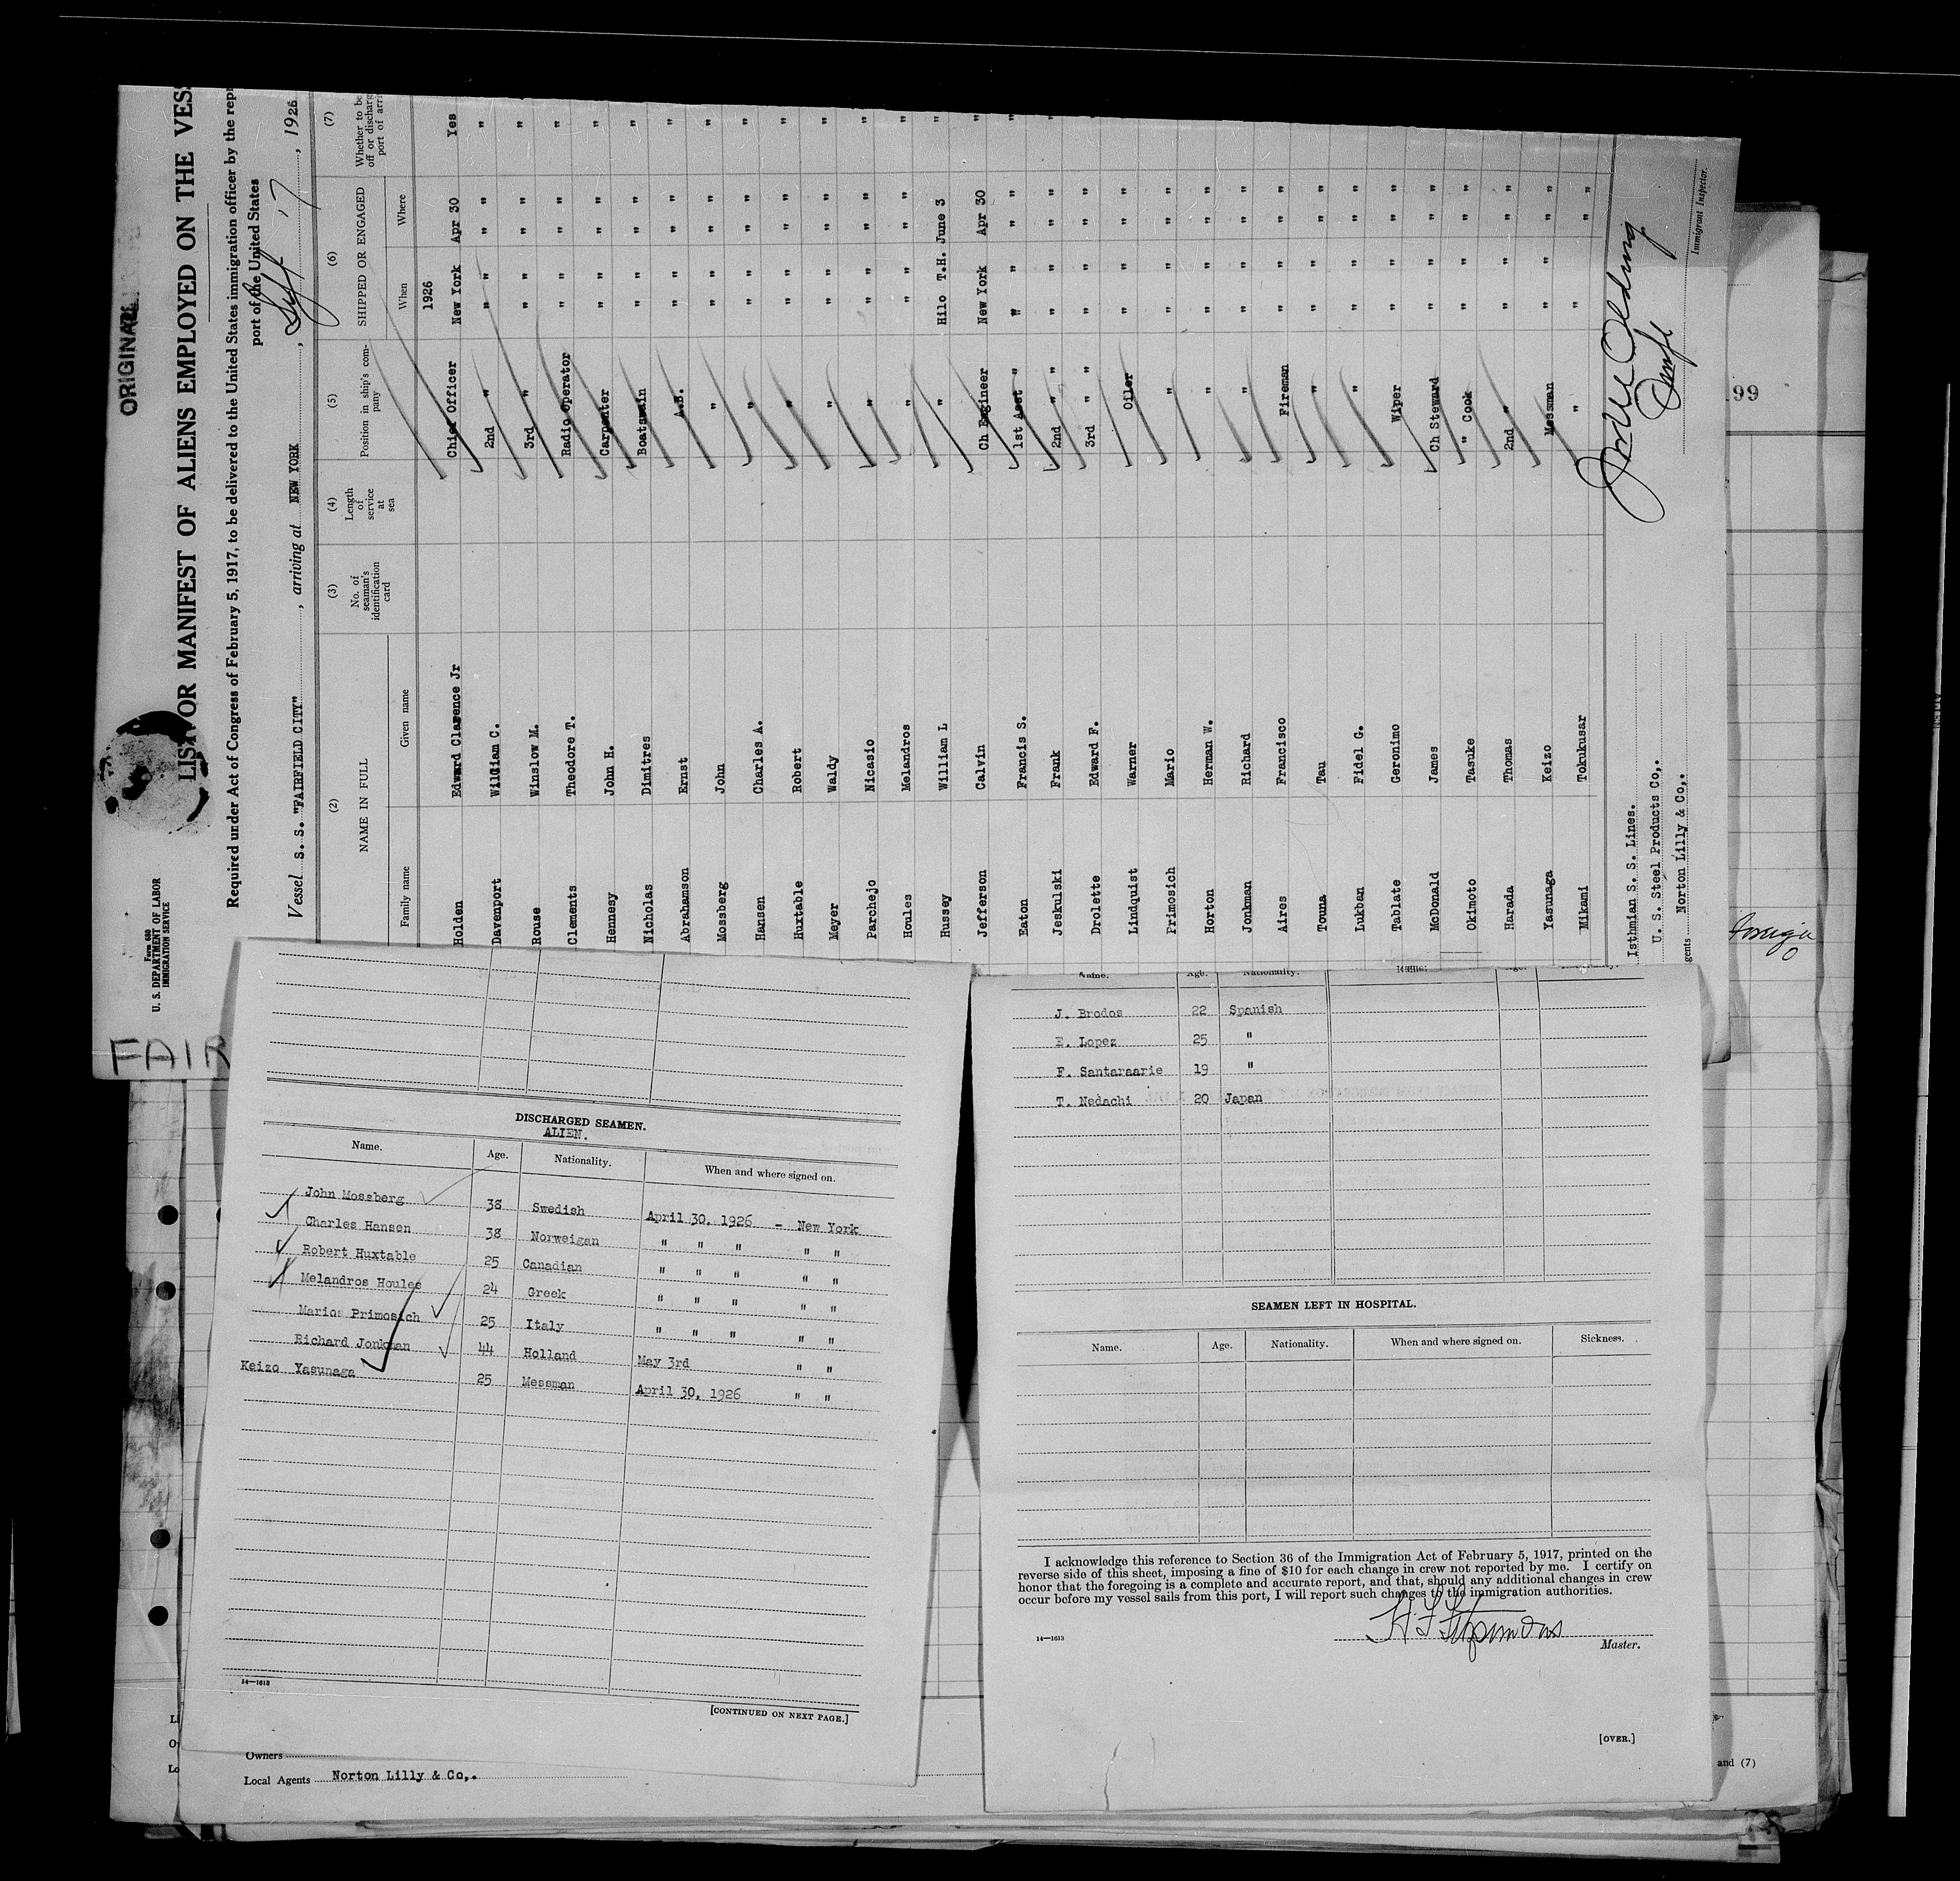 ORIGINAL
Form 680
U. S. DEPARTMENT OF LABOR
IMMIGRATION SERVICE
LIST OR MANIFEST OF ALIENS EMPLOYED ON THE VESS
Required under Act of Congress of February 5, 1917, to be delivered to the United States immigration officer by the repr
port of the United States
Vessel S. S. "FAIRFIELD CITY", arriving at NEW YORK, 17, 1926
(2) (3) (4) (5) (6) (7)
NAME IN FULL No. of seaman's identification card Length of service at sea Position in ship's company SHIPPED OR ENGAGED Whether to be
off or discharg
port of arri
Family name Given name When Where
1926
Holden Edward Clarence Jr Chief Officer New York Apr 30 Yes
Davenport William C. 2nd " " " " " "
Rouse Winslow M. 3rd " " " " " "
Clements Theodore T. Radio Operator " " " " "
Hennesy John H. Carpenter " " " " "
Nicholas Dimitres Boatswain " " " " "
Abrahamson Ernst A.B. " " " " "
Mossberg John " " " " " "
Hansen Charles A. " " " " " "
Huxtable Robert " " " " " "
Meyer Waldy " " " " " "
Parchejo Nicasio " " " " " "
Houles Melandros " " " " " "
Hussey William L " Hilo T.H. June 3 "
Jefferson Calvin Ch Engineer New York Apr 30 "
Eaton Francis S. 1st Asst " " " " " "
Jeskulski Frank 2nd " " " " " " "
Drolette Edward F. 3rd " " " " " "
Lindquist Warner Oiler " " " "
Primosich Mario " " " " "
Horton Herman W. " " " " "
Jonkman Richard " " " " "
Aires Francisco Fireman " " " "
Touna Tau " " " " "
Lukban Fidel G. " " " " "
Tablate Geronimo Wiper " " " "
McDonald James Ch Steward " " " "
Okimoto Tasuke " Cook " " " "
Harada Thomas 2nd " " " " "
Yasunaga Keizo Messman " " " "
Mikami Tokusar " " " "
Isthmian S. S. Lines.
U. S. Steel Products Co,.
gents Norton Lilly & Co,.
Immigrant Inspector.
99
foreign
FAIR
DISCHARGED SEAMEN.
ALIEN.
Name. Age. Nationality. When and where signed on.
John Mossberg 38 Swedish April 30, 1926 - New York
Charles Hansen 38 Norweigan " " " " "
Robert Huxtable 25 Canadian " " " " "
Melandros Houles 24 Greek " " " " "
Marios Primosich 25 Italy " " " " "
Richard Jonkman 44 Holland May 3rd " "
Keizo Yasunaga 25 Messman April 30, 1926 " "
14—1613
[CONTINUED ON NEXT PAGE.]
Owners
Local Agents Norton Lilly & Co,.
Name. Age. Nationality. Name.
J. Brodos 22 Spanish
E. Lopez 25 "
F. Santaraarie 19 "
T. Nedachi 20 Japan
SEAMEN LEFT IN HOSPITAL.
Name. Age. Nationality. When and where signed on. Sickness.
I acknowledge this reference to Section 36 of the Immigration Act of February 5, 1917, printed on the
reverse side of this sheet, imposing a fine of $10 for each change in crew not reported by me. I certify on
honor that the foregoing is a complete and accurate report, and that, should any additional changes in crew
occur before my vessel sails from this port, I will report such changes to the immigration authorities.
14—1613
Master.
[OVER.]
and (7)